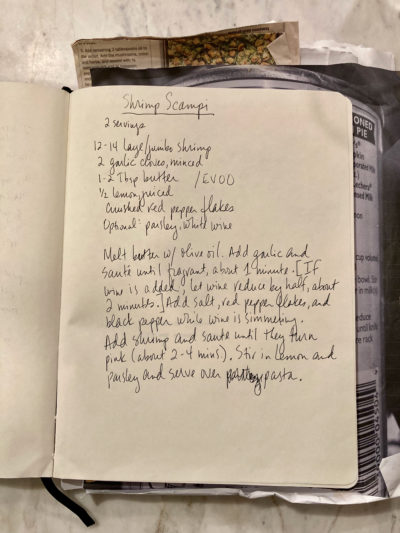 Shrimp Scampi
2 servings
12-14 large/jumbo shrimp
2 garlic cloves, minced
1-2 Tbsp butter /EVOO
1/2 lemon, juiced
Crushed red pepper flakes
Optional: parsley, white wine
Melt butter w/ olive oil. Add garlic and
sauté until fragrant, about 1 minute. [If
wine is added, let wine reduce by half, about
2 minutes.] Add salt, red pepper flakes, and
black pepper while wine is simmering.
Add shrimp and sauté until they turn
pink (about 2-4 mins). Stir in lemon and
parsley and serve over pasta.
ONED
PIE